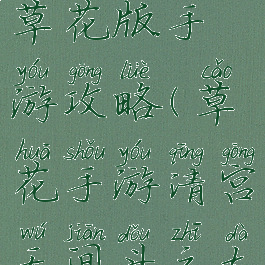 草花版手
yóu gōng lüè cǎo
游攻略(草
huā shǒu yóu qīng gōng
花手游清宫
wú jiān dòu zhī dà
无间斗之大